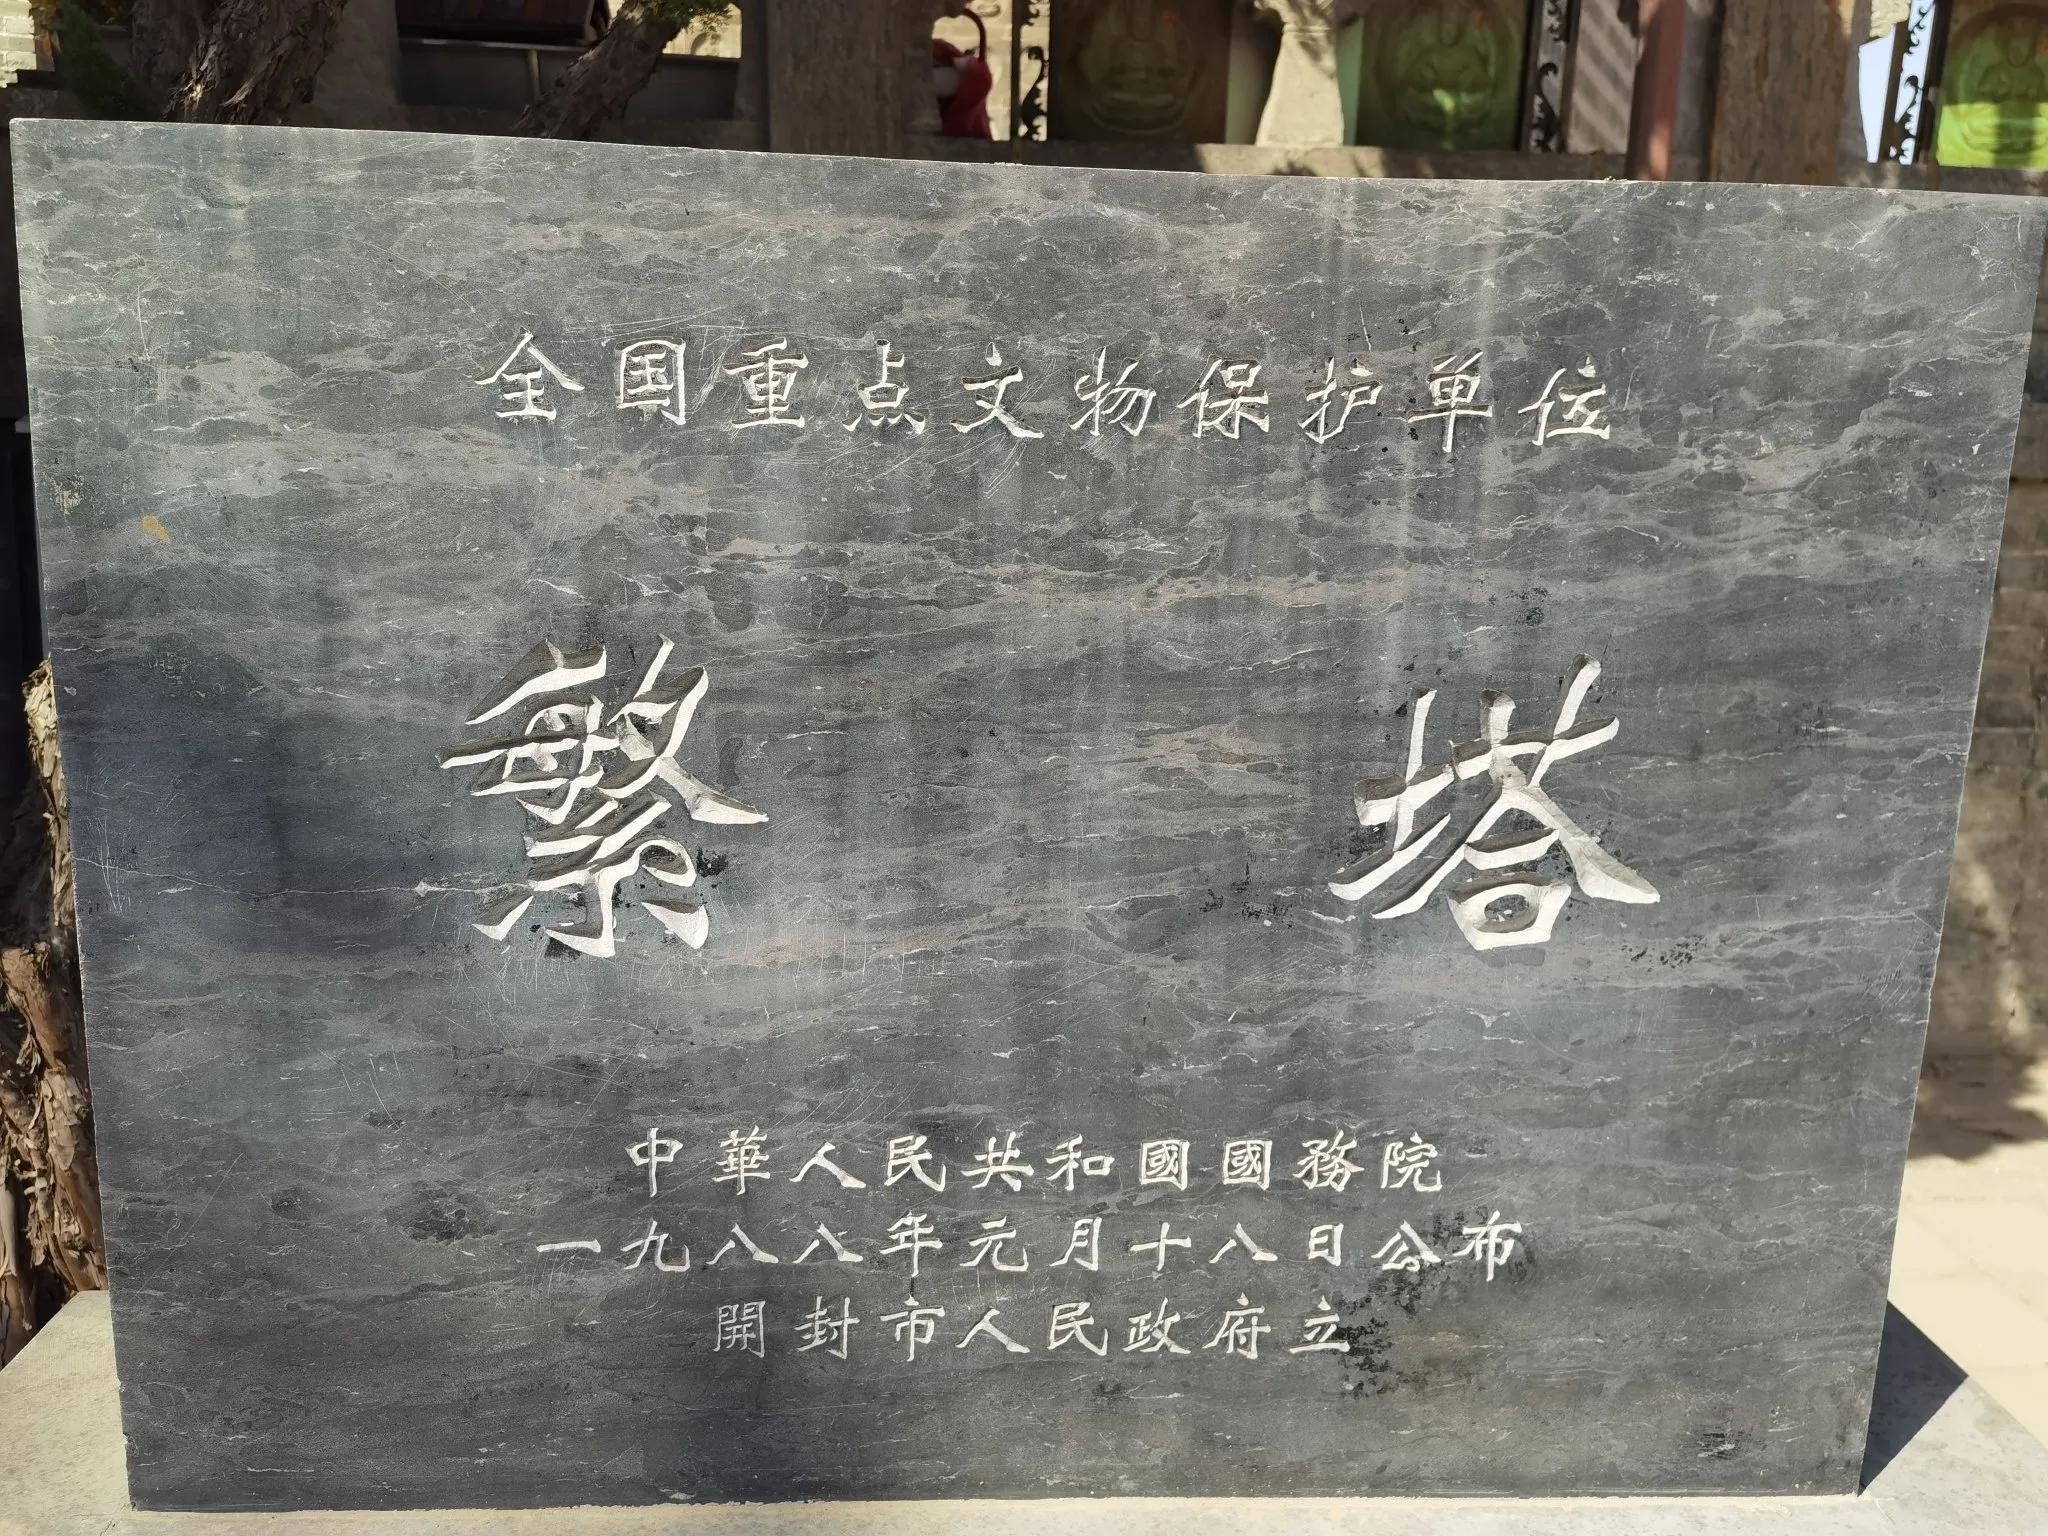 全国重点文物保护单位
繁塔
中華人民共和國國務院
一九八八年元月十八日公布
開封市人民政府立